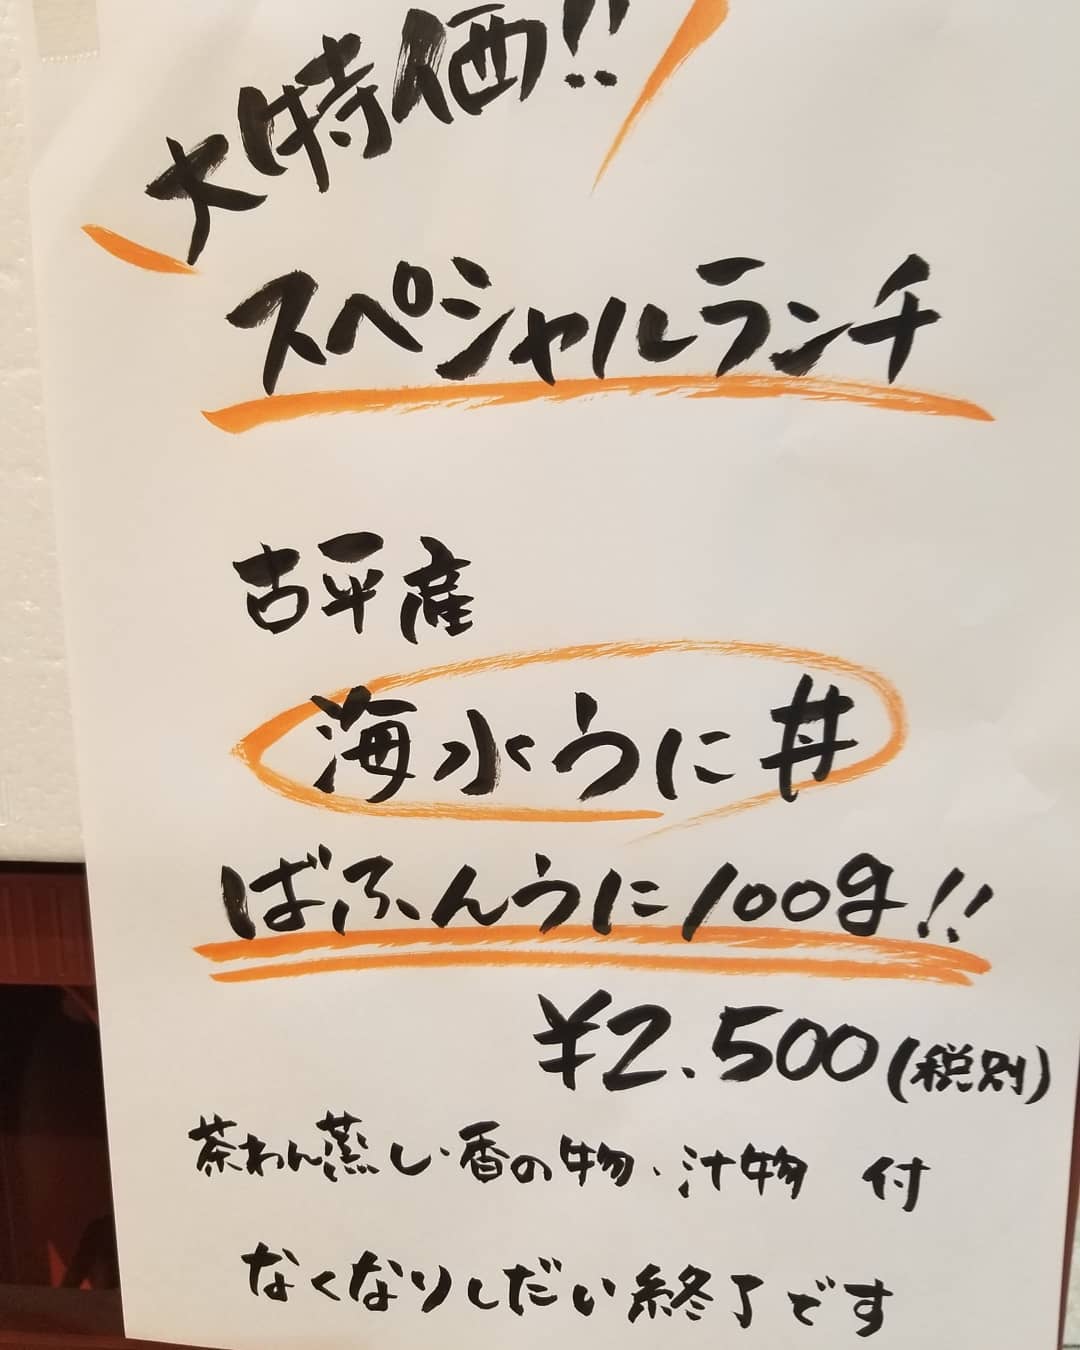 大特価!!
スペシャルランチ
古平産
海水うに丼
ばふんうに100g!!
¥2.500(税別)
茶わん蒸し・香の物・汁物 付
なくなりしだい終了です